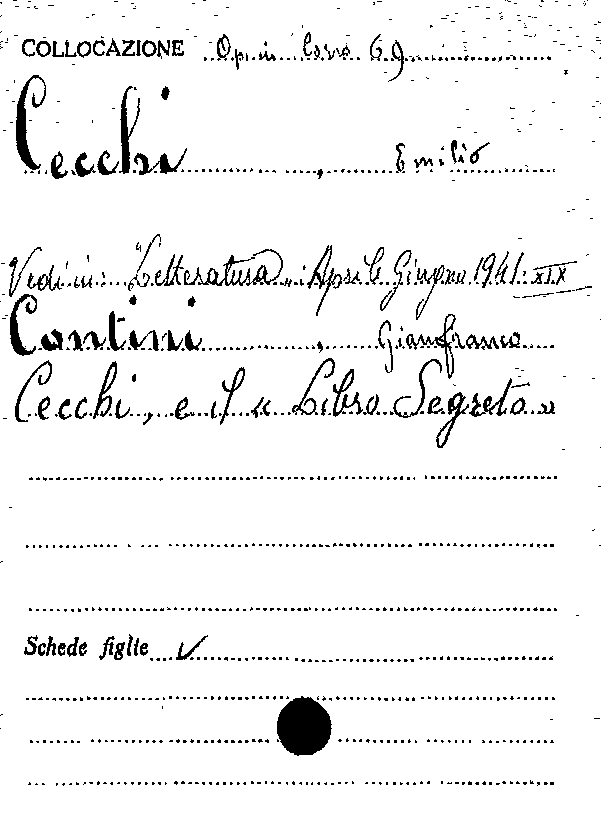 COLLOCAZIONE Op. in Corso 69
Cecchi, Emilio
Vedi in: "Letteratura„: Aprile Giugno 1941. XIX
Contini, Gianfranco
Cecchi, e il « Libro Segreto »
Schede figlie ✓